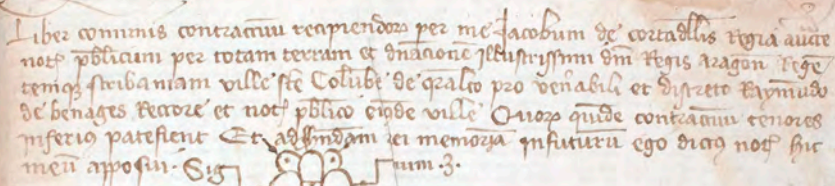 Liber comunis contractuu recipiendor per me Jacobum de cortadellis Regia aucte
not pblicum per totam terram et dnacione Illustrissimi dni Regis aragon Rege
temqz scribaniam ville ste Colube de qralto pro venabili et discreto Raymundo
de benages Rectore et not pblico eiusde ville Quor quide contractuu tenores
inferius patefient Et ad hndam rei memoria in futuru ego dictus not hic
meu apposui. Sig num. 3.